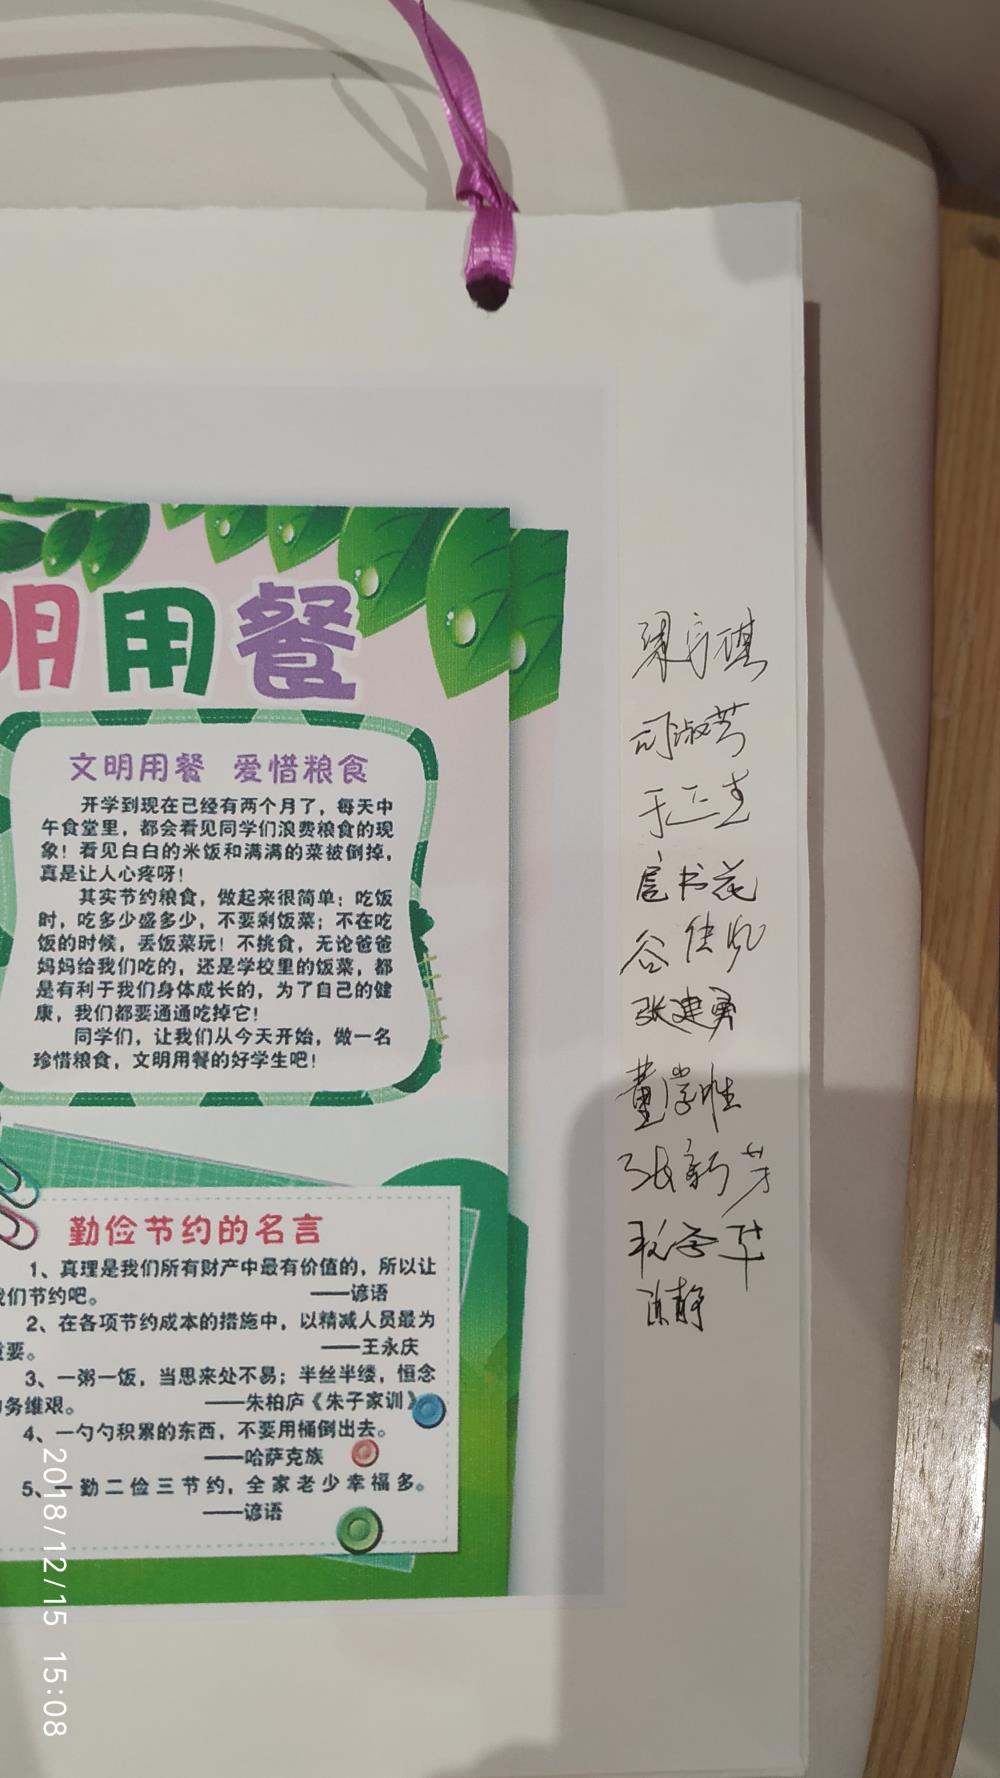 明用餐
文明用餐 爱惜粮食
开学到现在已经有两个月了，每天中
午食堂里，都会看见同学们浪费粮食的现
象！看见白白的米饭和满满的菜被倒掉，
真是让人心疼呀！
其实节约粮食，做起来很简单：吃饭
时，吃多少盛多少，不要剩饭菜；不在吃
饭的时候，丢饭菜玩！不挑食，无论爸爸
妈妈给我们吃的，还是学校里的饭菜，都
是有利于我们身体成长的，为了自己的健
康，我们都要通通吃掉它！
同学们，让我们从今天开始，做一名
珍惜粮食，文明用餐的好学生吧！
勤俭节约的名言
1、真理是我们所有财产中最有价值的，所以让
我们节约吧。 ——谚语
2、在各项节约成本的措施中，以精减人员最为
重要。 ——王永庆
3、一粥一饭，当思来处不易；半丝半缕，恒念
物务维艰。 ——朱柏庐《朱子家训》
4、一勺勺积累的东西，不要用桶倒出去。
——哈萨克族
5、一勤二俭三节约，全家老少幸福多。
——谚语
司淑芳
扈书花
谷佳
张建勇
董学胜
张新芳
陈静
2018/12/15 15:08